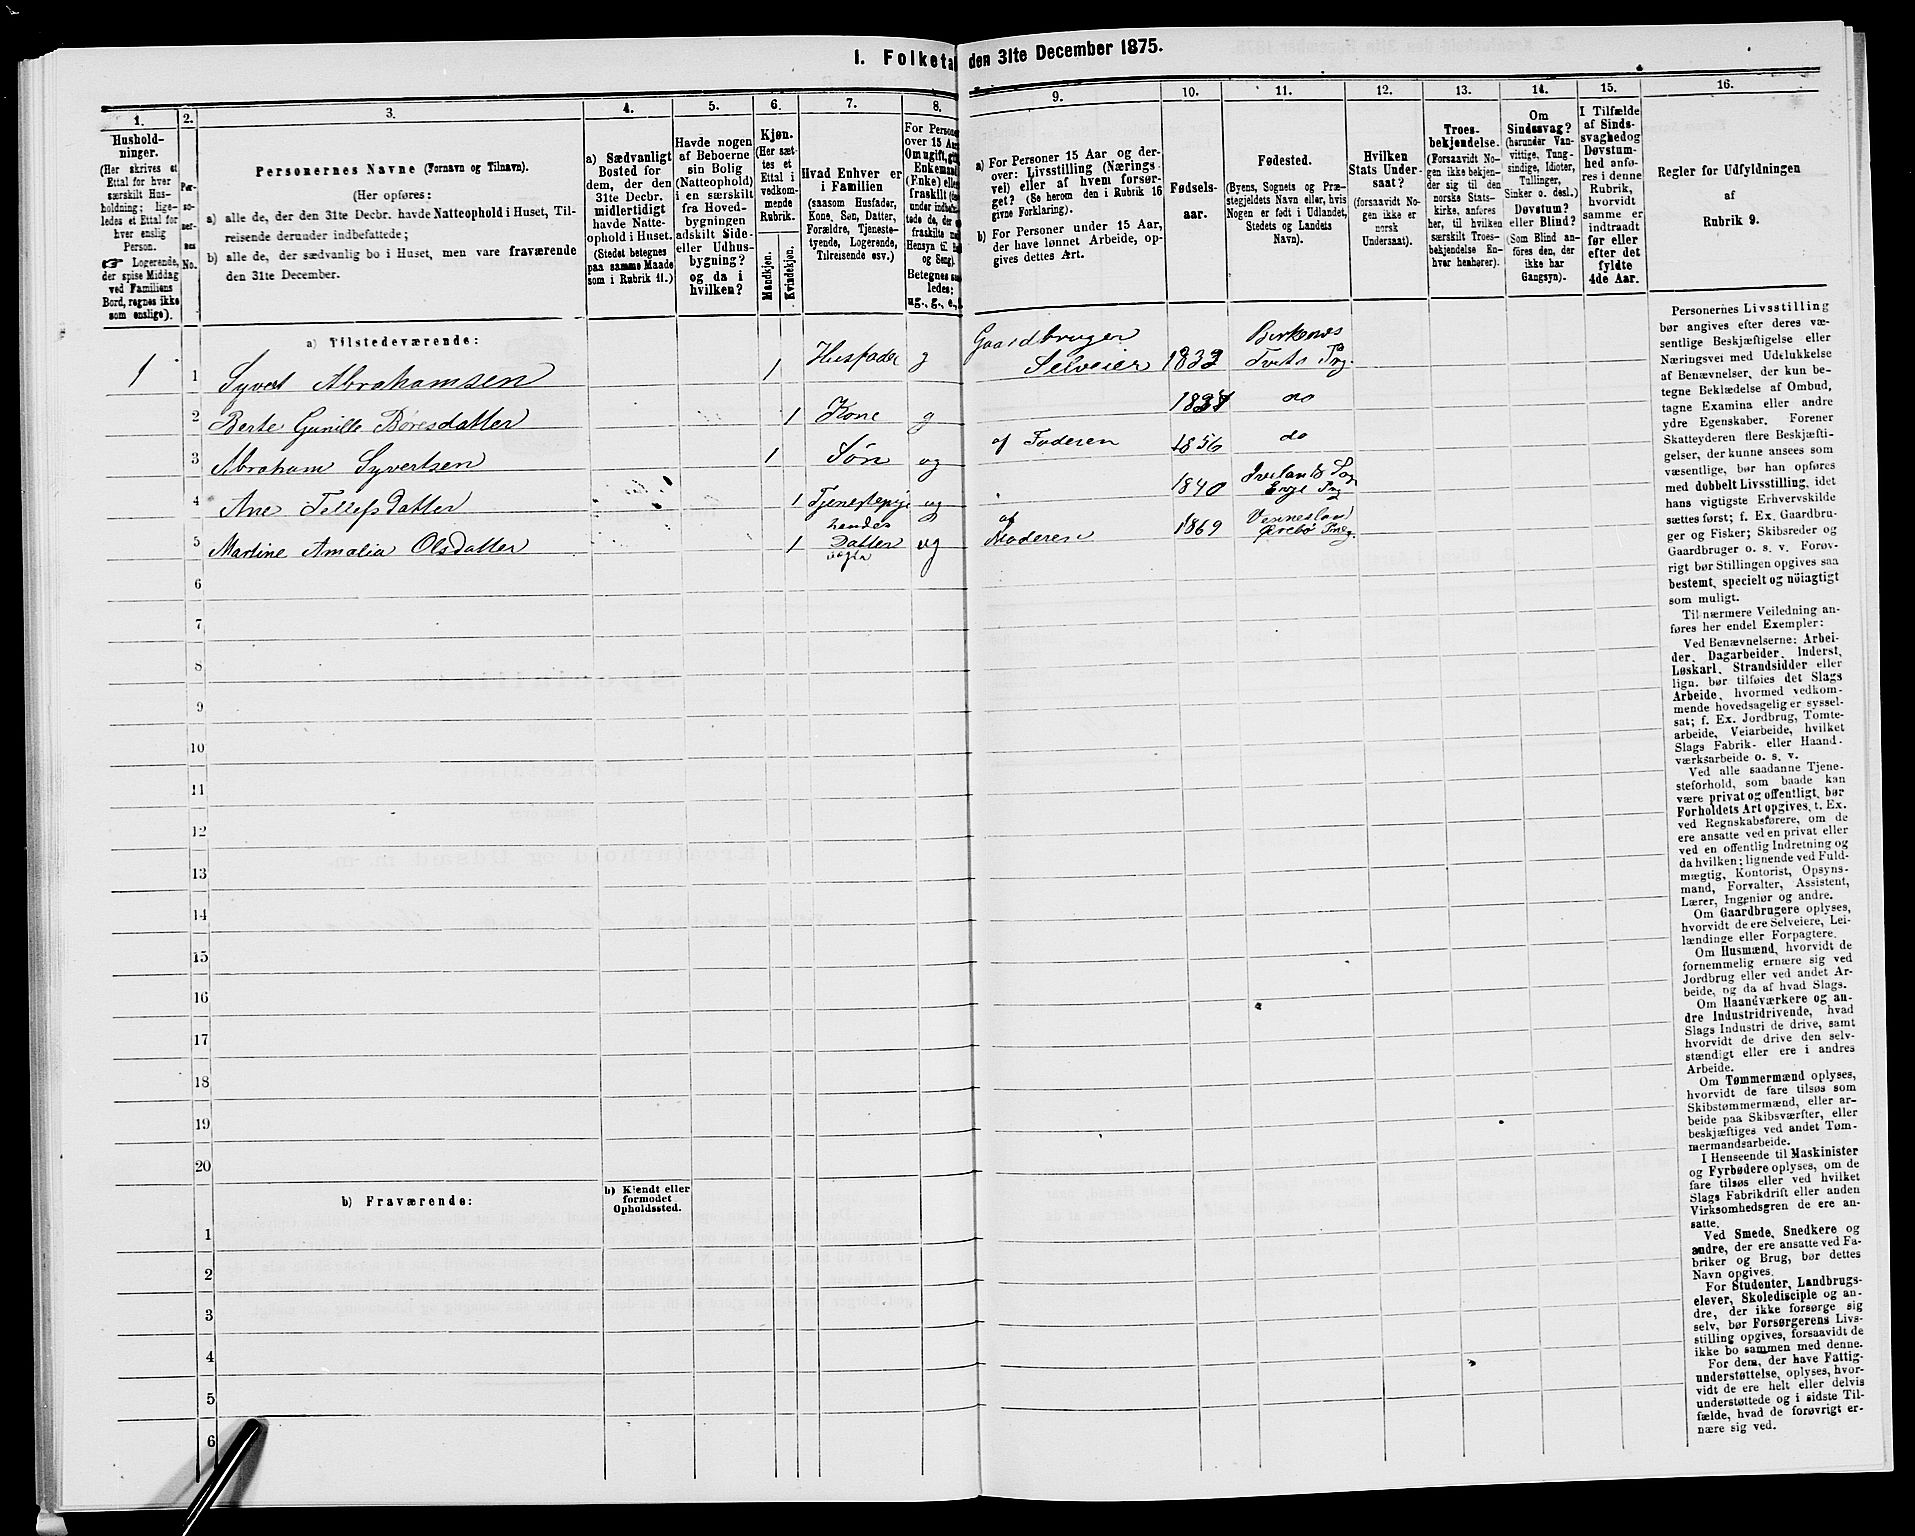 1. Folketal den 31te December 1875.
1.
Hushold-
ninger.
(Her skrives et
Ettal for hver
særskilt Hus-
holdning; lige-
ledes et Ettal for
hver enslig
Person.
☞ Logerende,
der spise Middag
ved Familiens
Bord, regnes ikke
som enslige).
2.
Per-
so-
ner-
nes
No.
3.
Personernes Navne (Fornavn og Tilnavn).
(Her opføres:
a) alle de, der den 31te Decbr. havde Natteophold i Huset, Til-
reisende derunder indbefattede;
b) alle de, der sædvanlig bo i Huset, men vare fraværende
den 31te December.
4.
a) Sædvanligt
Bosted for
dem, der den
31te Decbr.
midlertidigt
havde Natte-
ophold i Huset.
(Stedet betegnes
paa samme Maade
som i Rubrik 11.)
5.
Havde nogen
af Beboerne
sin Bolig
(Natteophold)
i en særskilt
fra Hoved-
bygningen
adskilt Side-
eller Udhus-
bygning?
og da i
hvilken?
6.
Kjøn.
(Her sæt-
tes et
Ettal i
vedkom-
mende
Rubrik.
Mandkjøn.
Kvindekjøn.
7.
Hvad Enhver er
i Familien
(saasom Husfader,
Kone, Søn, Datter,
Forældre, Tjeneste-
tyende, Logerende,
Tilreisende osv.)
8.
For Persone
over 15 Aar
Om ugift, gift
Enkemand
(Enke) elle
fraskilt
under indbefat-
tede de, der
fraskilte
Hensyn til
og Seng).
Betegnes saa-
ledes:
ug., g., e.,
9.
a) For Personer 15 Aar og der-
over: Livsstilling (Nærings-
vei) eller af hvem forsør-
get? (Se herom den i Rubrik 16
givne Forklaring).
b) For Personer under 15 Aar,
der have lønnet Arbeide, op-
gives dettes Art.
10.
Fødsels-
aar.
11.
Fødested.
(Byens, Sognets og Præ-
stegjeldets Navn eller, hvis
Nogen er født i Udlandet,
Stedets og Landets
Navn).
12.
Hvilken
Stats Under-
saat?
(forsaavidt No-
gen ikke er
norsk
Undersaat).
13.
Troes-
bekjendelse.
(Forsaavidt No-
gen ikke bekjen-
der sig til den
norske Stats-
kirke, anføres
her, til hvilken
særskilt Troes-
bekjendelse En-
hver henhører).
14.
Om
Sindssvag?
(herunder Van-
vittige, Tung-
sindige, Idioter,
Tullinger,
Sinker o. desl.)
Døvstum?
eller Blind?
(Som Blind an-
føres den, der
ikke har
Gangsyn).
15.
I Tilfælde
af Sinds-
svaghed og
Døvstum-
hed anfø-
res i denne
Rubrik,
hvorvidt
samme er
indtraadt
før eller
efter det
fyldte
4de Aar.
16.
Regler for Udfyldningen
af
Rubrik 9.
a) Tilstedeværende:
1 1 Syvert Abrahamsen 1 Husfader g Gaardbruger Selveier 1833 Birkenes Tveits Pg.
2 Berte Gunille Børesdatter 1 Kone g do
3 Abraham Syvertsen 1 Søn ug af Faderen 1856 do
4 Ane Tellefsdatter 1 Tjenestepige ug 1840 Ivelands Sog Evje Pg
5 Martine Amalia Olsdatter 1 hendes Datter ug af Moderen 1869 Venneslan Øvrebø Præg.
6
7
8
9
10
11
12
13
14
15
16
17
18
19
20
b) Fraværende:
b) Kjendt eller
formodet
Opholdssted.
1
2
3
4
5
6
Personernes Livsstilling
bør angives efter deres væ-
sentlige Beskjæftigelse eller
Næringsvei med Udelukkelse
af Benævnelser, der kun be-
tegne Beklædelse af Ombud,
tagne Examina eller andre
ydre Egenskaber. Forener
Skatteyderen flere Beskjæfti-
gelser, der kunne ansees som
væsentlige, bør han opføres
med dobbelt Livsstilling, idet
hans vigtigste Erhvervskilde
sættes først; f. Ex. Gaardbru-
ger og Fisker; Skibsreder og
Gaardbruger o. s. v. Forøv-
rigt bør Stillingen opgives saa
bestemt, specielt og nöiagtigt
som muligt.
Til nærmere Veiledning an-
føres her endel Exempler:
Ved Benævnelserne: Arbei-
der, Dagarbeider, Inderst,
Løskarl, Strandsidder eller
lign. bør tilføies det Slags
Arbeide, hvormed vedkom-
mende hovedsagelig er syssel-
sat; f. Ex. Jordbrug, Tomte-
arbeide, Veiarbeide, hvilket
Slags Fabrik- eller Haand-
værksarbeide o. s. v.
Ved alle saadanne Tjene-
steforhold, som baade kan
være privat og offentligt, bør
Forholdets Art opgives, t. Ex.
ved Regnskabsførere, om de
ere ansatte ved en privat eller
ved en offentlig Indretning og
da hvilken; lignende ved Fuld-
mægtig, Kontorist, Opsyns-
mand, Forvalter, Assistent,
Lærer, Ingeniør og andre.
Om Gaardbrugere oplyses,
hvorvidt de ere Selveiere, Lei-
lændinge eller Forpagtere.
Om Husmænd, hvorvidt de
fornemmelig ernære sig ved
Jordbrug eller ved andet Ar-
beide, og da af hvad Slags.
Om Haandværkere og an-
dre Industridrivende, hvad
Slags Industri de drive, samt
hvorvidt de drive den selv-
stændigt eller ere i andres
Arbeide.
Om Tømmermænd oplyses,
hvorvidt de fare tilsøs som
Skibstømmermænd, eller ar-
beide paa Skibsværfter, eller
beskjæftiges ved andet Tøm-
mermandsarbeide.
I Henseende til Maskinister
og Fyrbødere oplyses, om de
fare tilsøs eller ved hvilket
Slags Fabrikdrift eller anden
Virksomhedsgren de ere an-
satte.
Ved Smede, Snedkere og
andre, der ere ansatte ved Fa-
briker og Brug, bør dettes
Navn opgives.
For Studenter, Landbrugs-
elever, Skoledisciple og an-
dre, der ikke forsørge sig
selv, bør Forsørgerens Livs-
stilling opgives, forsaavidt de
ikke bo sammen med denne.
For dem, der have Fattig-
understøttelse, oplyses, hvor-
vidt de ere helt eller delvis
understøttede og i sidste Til-
fælde, hvad de forøvrigt er-
nære sig ved.